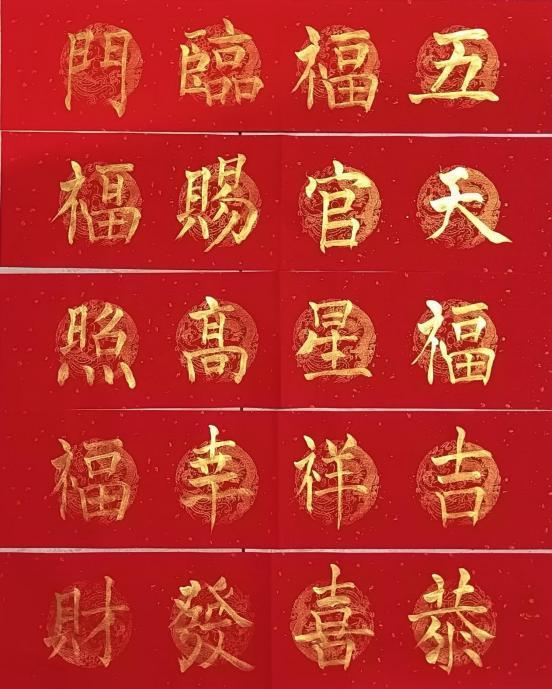 五福臨門
天官賜福
福星高照
吉祥幸福
恭喜發財